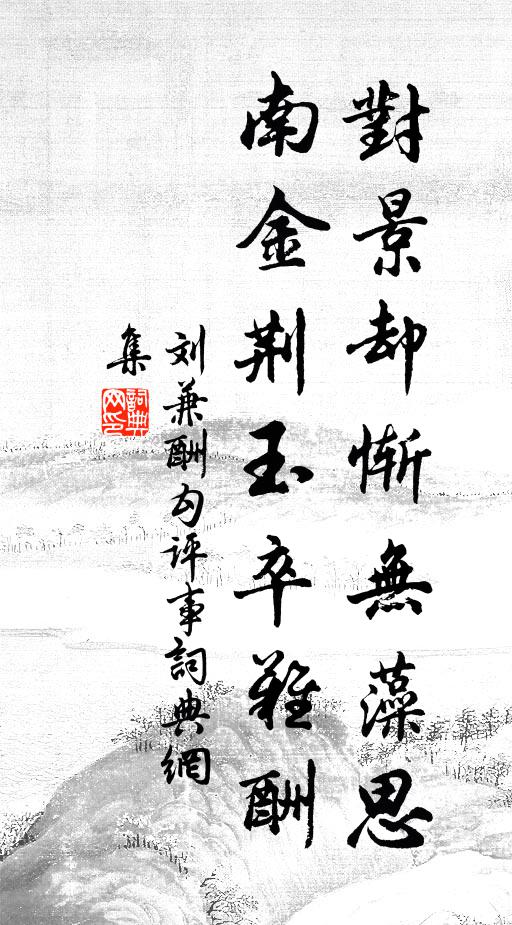 對景却慚無藻思
南金荆玉卒難酬
刘兼酬勾评事詞典網
集
詞典
网印